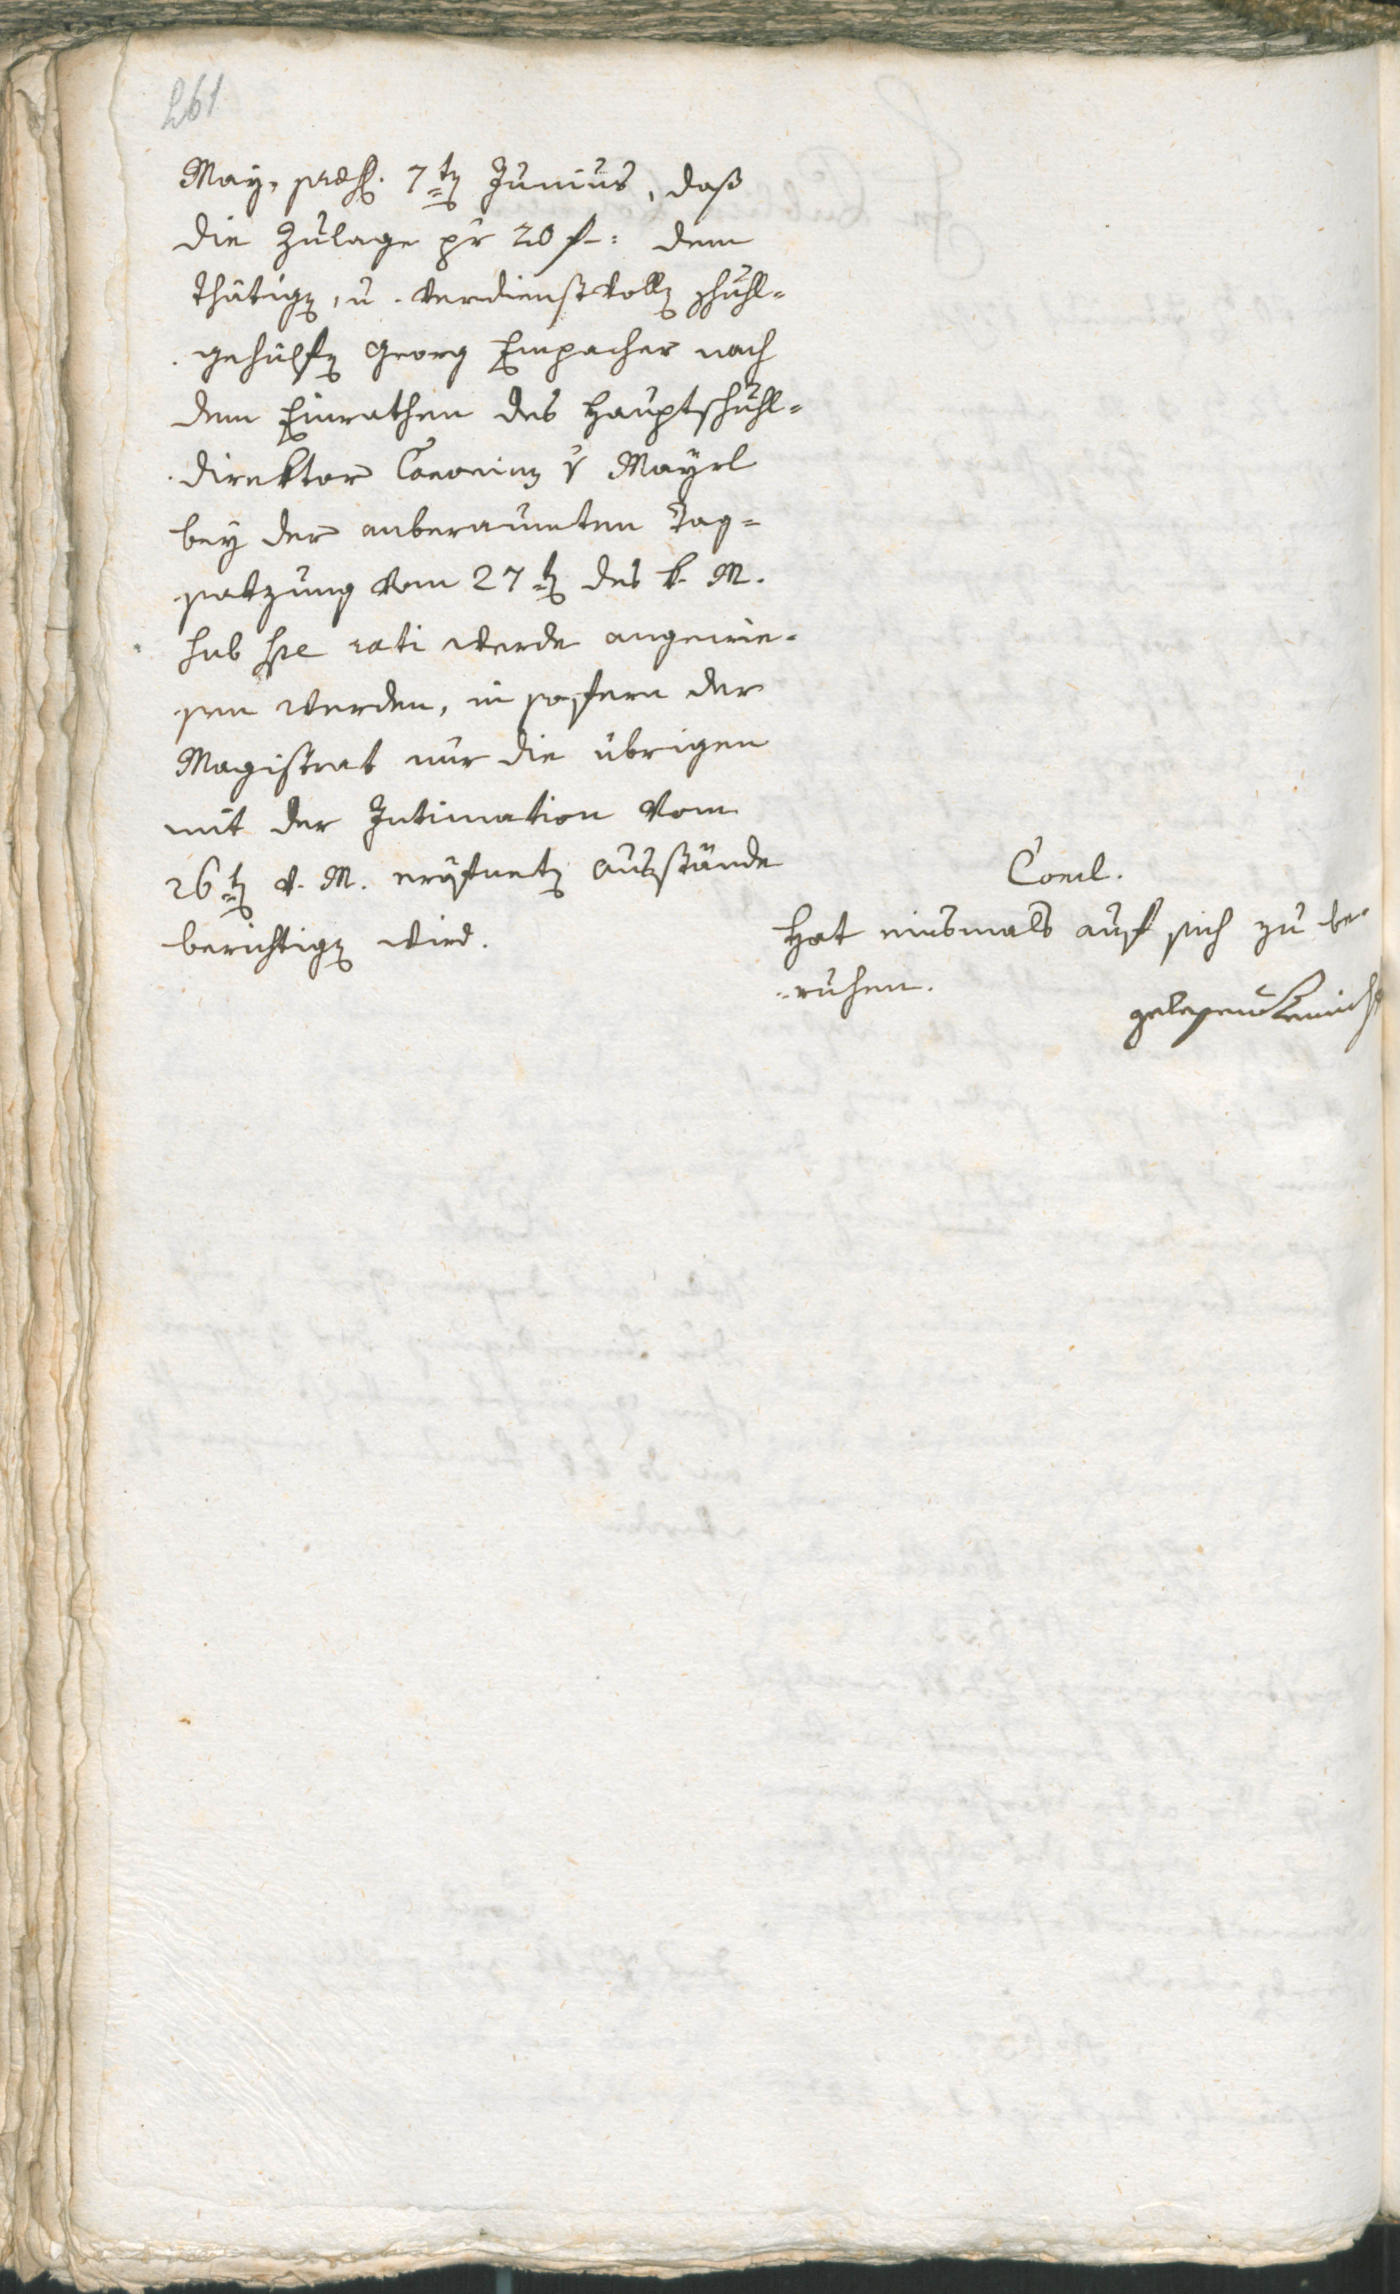 261
May, præs. 7ten Junius, daß
die Zulage pr 20 f: dem
thätigen, u. verdienstvollen Schuhl=
gehülfen Georg Empacher nach
dem Einrathen des Hauptschuhl=
direktor Canonicus v Mayrl
bey der anberaumten Tag=
satzung vom 27ten des k. M.
sub spe rati werde angewie=
sen werden, in sofern der
Magistrat nur die übrigen
mit der Intimation vom
26ten v. M. eröfneten Ausstände
berichtigen wird.
Concl.
Hat einsmals auf sich zu be=
=ruhen.
gelesen